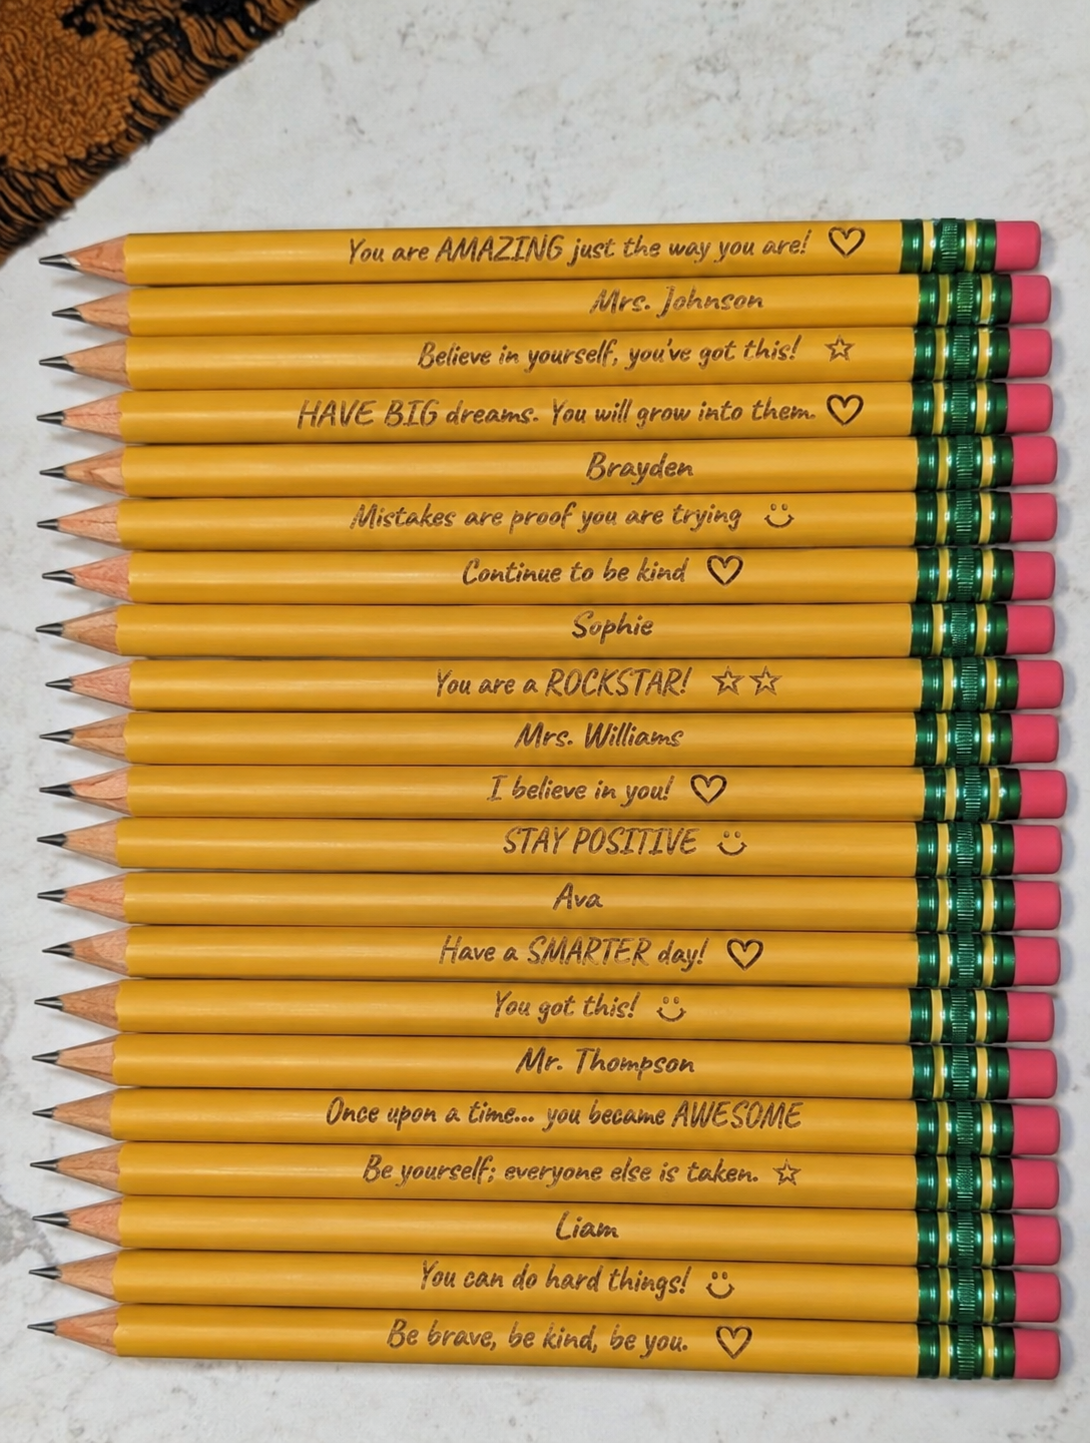 You are AMAZING just the way you are! ♡
Mrs. Johnson
Believe in yourself, you've got this! ☆
HAVE BIG dreams. You will grow into them. ♡
Brayden
Mistakes are proof you are trying ☺
Continue to be kind ♡
Sophie
You are a ROCKSTAR! ☆☆
Mrs. Williams
I believe in you! ♡
STAY POSITIVE ☺
Ava
Have a SMARTER day! ♡
You got this! ☺
Mr. Thompson
Once upon a time... you became AWESOME
Be yourself; everyone else is taken. ☆
Liam
You can do hard things! ☺
Be brave, be kind, be you. ♡